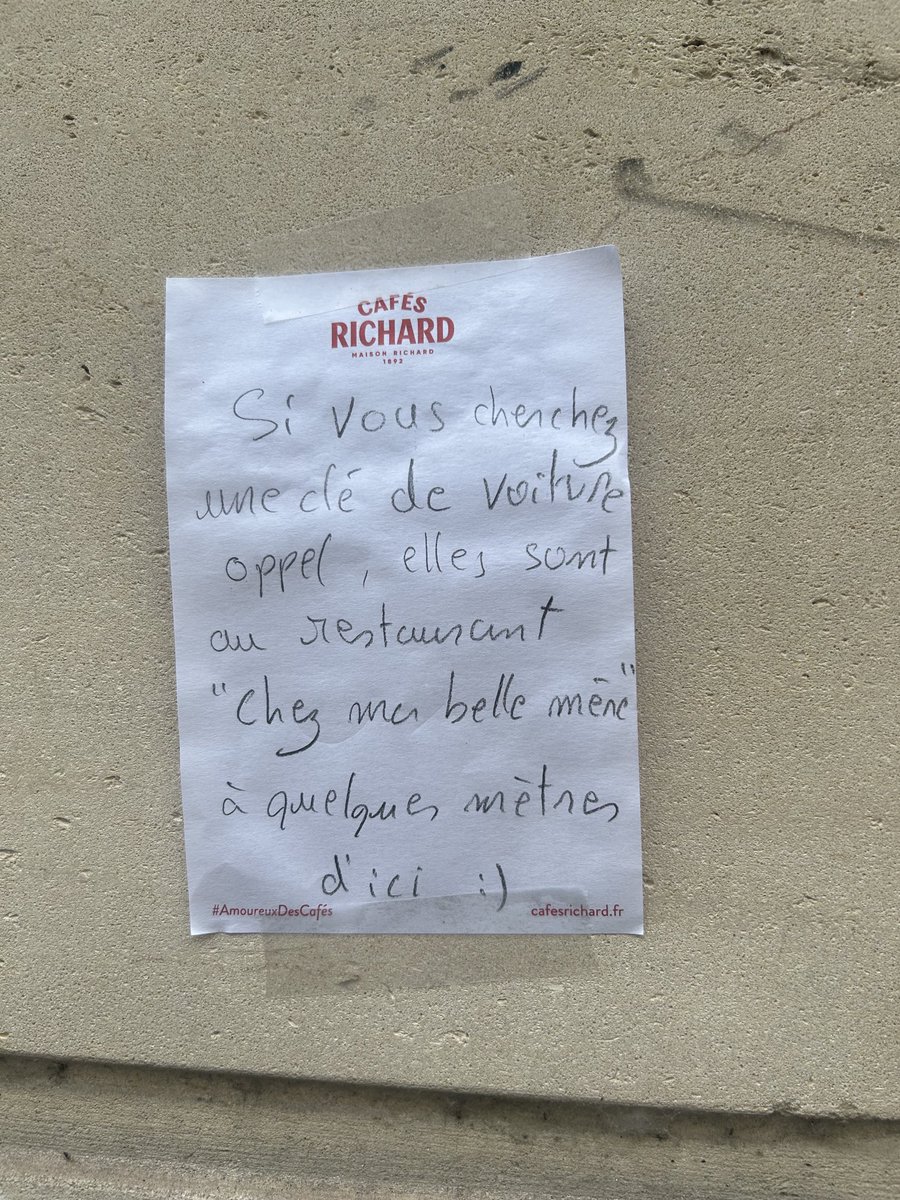 CAFÉS
RICHARD
MAISON RICHARD
1892
Si vous cherchez
une clé de voiture
oppel, elles sont
au restaurant
"Chez ma belle mère"
à quelques mètres
d'ici :)
#AmoureuxDesCafés
cafesrichard.fr